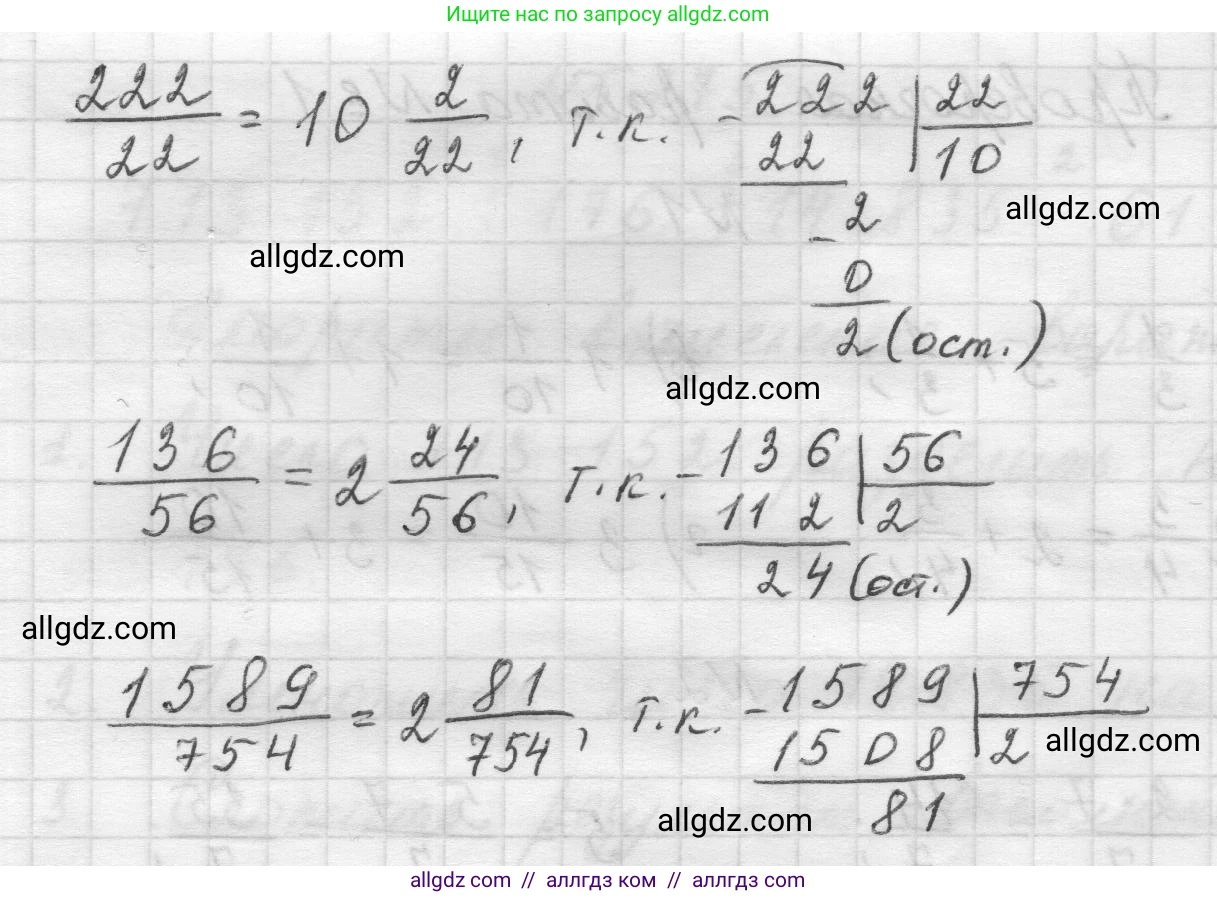 Ищите нас по запросу allgdz.com
222/22 = 10 2/22, т.к. - 222 | 22
22 | 10
allgdz.com
2
-
allgdz.com
0
2 (ост.)
allgdz.com
136/56 = 2 24/56, т.к. - 136 | 56
112 | 2
24 (ост.)
allgdz.com
1589/754 = 2 81/754, т.к. - 1589 | 754
1508 | 2
allgdz.com
81
allgdz.com
allgdz com // аллгдз ком // аллгдз com